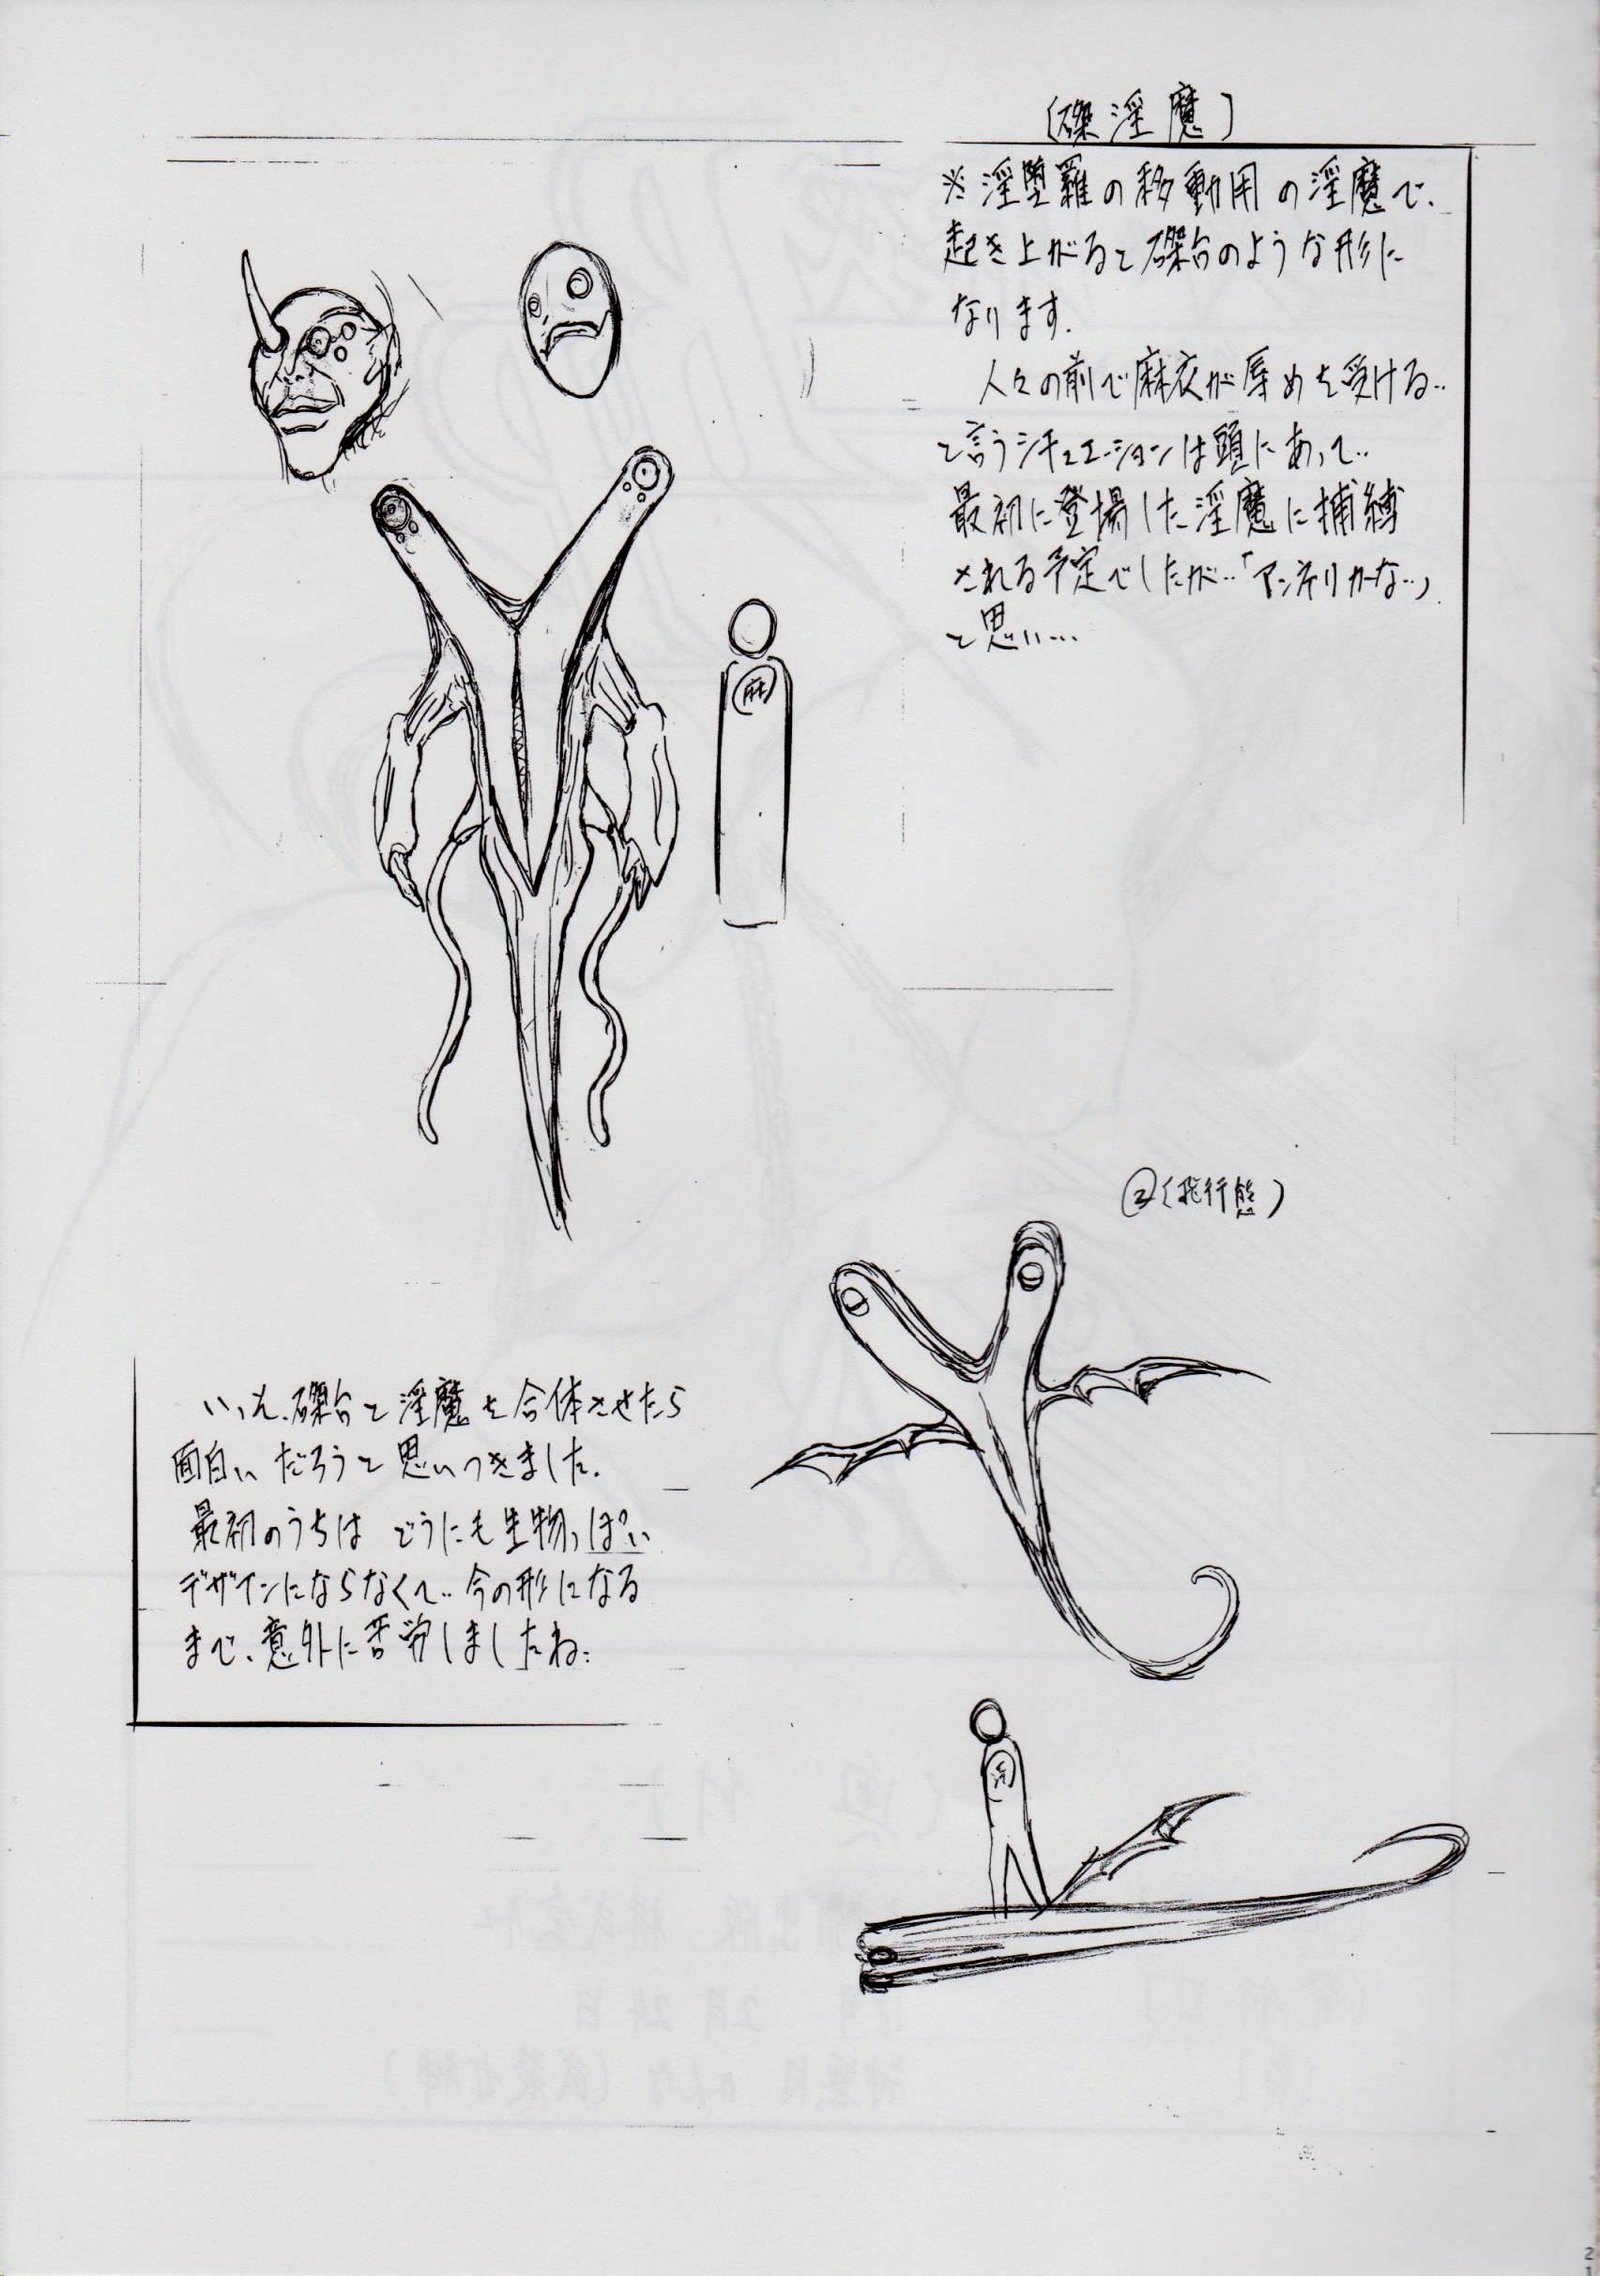 (磔淫魔)
※淫堕羅の移動用の淫魔で、
起き上がると磔台のような形に
なります。
人々の前で麻衣が辱めを受ける‥
と言うシチュエーションは頭にあって‥
最初に登場した淫魔に捕縛
される予定でしたが‥「アンチリかーな‥」
と思い…
麻
②(飛行態)
いっそ、磔台と淫魔を合体させたら
面白いだろうと思いつきました。
最初のうちは どうにも生物っぽい
デザインにならなくて‥今の形になる
まで、意外に苦労しましたね‥
淫
21